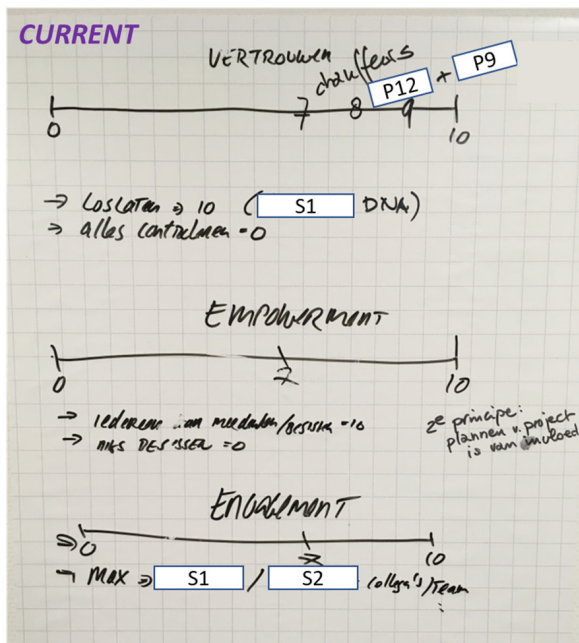 CURRENT
VERTROUWEN
chauffeurs
P12 + P9
0 7 8 9 10
→ Loslaten → 10 ( S1 DNA)
→ alles controleren = 0
EMPOWERMENT
0 7 10
→ iedereen kan meedenken/beslissen = 10
→ niks beslissen = 0
2e principe:
plannen v. project
is van invloed
ENGAGEMENT
0 7 10
→ Max → S1 / S2 collega's/Team